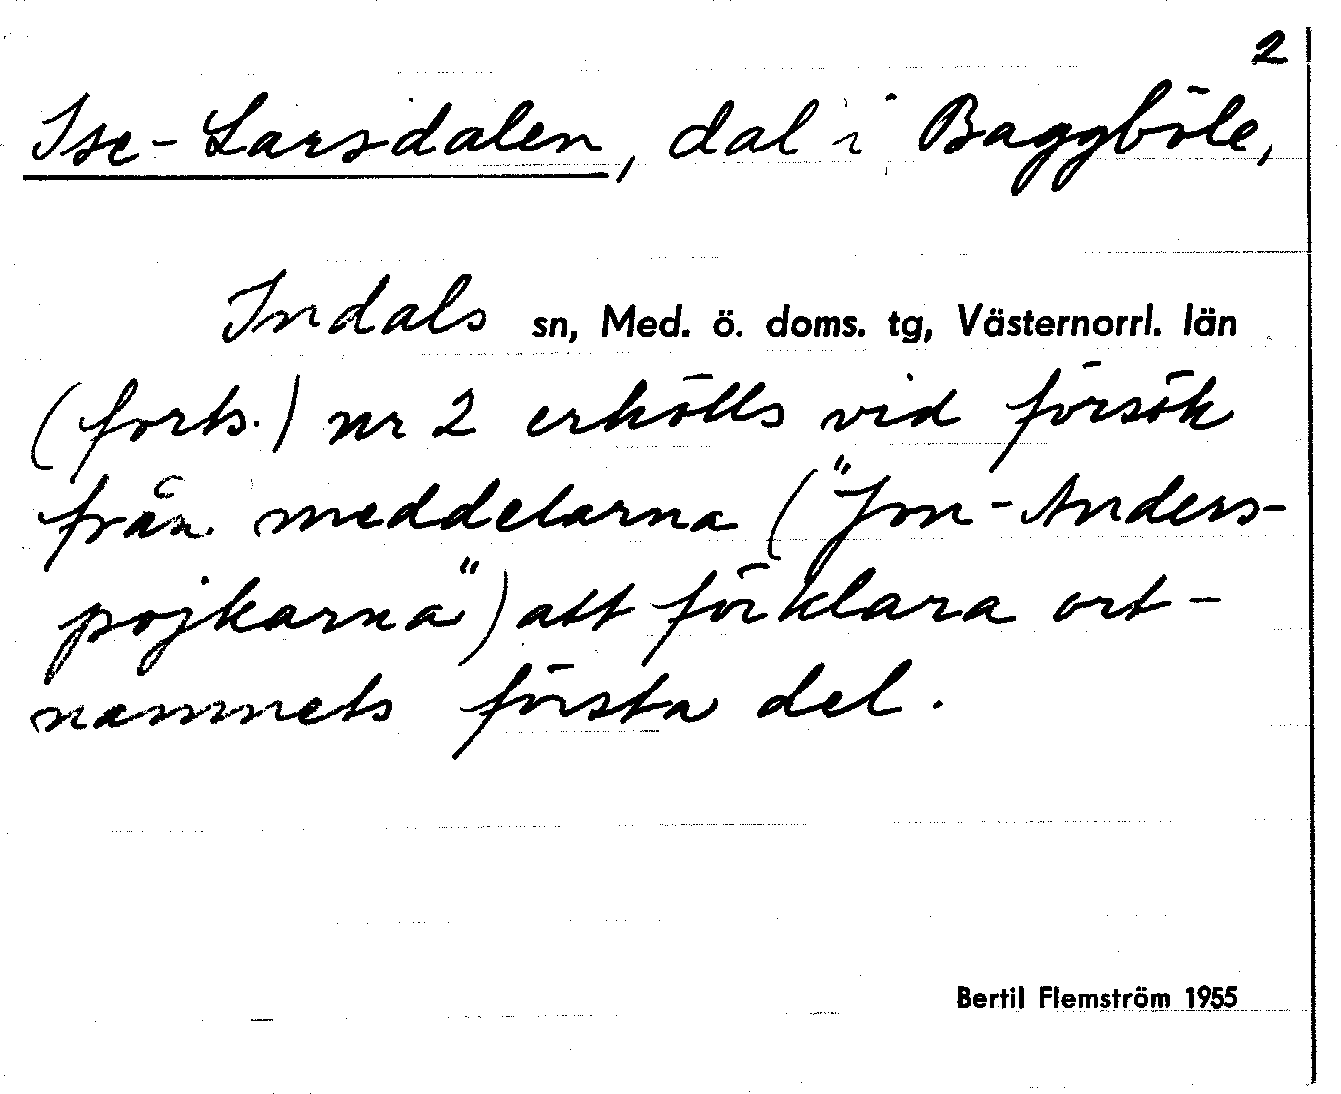 2
Ise-Larsdalen, dal i Baggböle,
Indals sn, Med. ö. doms. tg, Västernorrl. län
(forts.) nr 2 erhölls vid försök
från meddelarna ("Jon-Anders-
pojkarna") att förklara ort-
namnets första del.
Bertil Flemström 1955